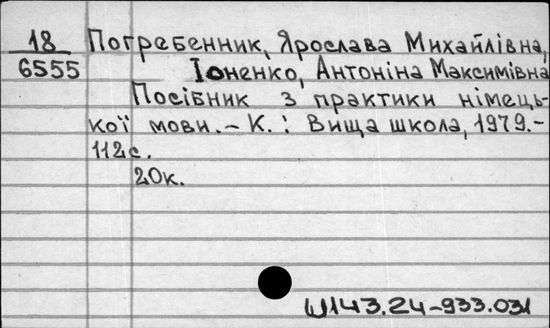 18
6555
Погребенник, Ярослава Михайлівна,
Іоненко, Антоніна Максимівна
Посібник з практики німець-
кої мови.– К.: Вища школа, 1979.–
112с.
20к.
Ш143.24-933.031